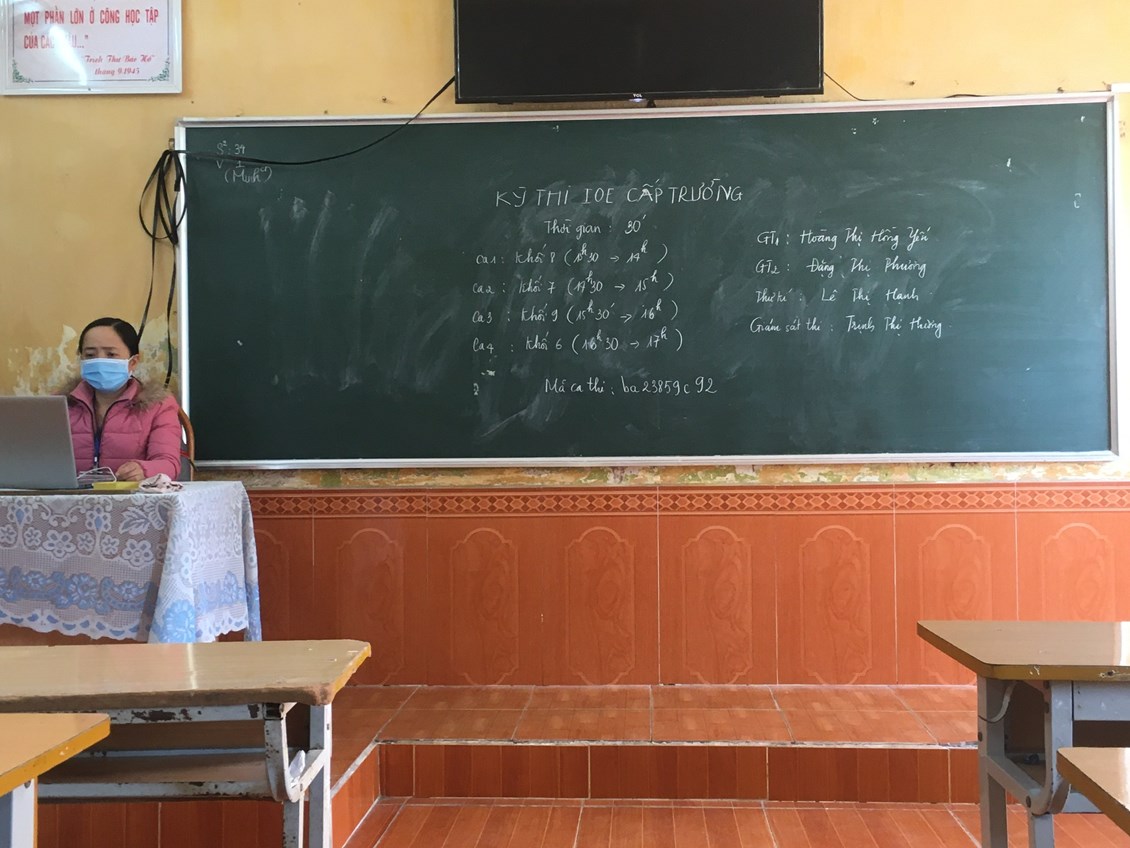 MỘT PHẦN LỚN Ở CÔNG HỌC TẬP
CỦA CÁC
"Trích Thư Bác Hồ"
tháng 9.1945
TCL
Sĩ: 39
V: 1
(Minh)
KỲ THI IOE CẤP TRƯỜNG
Thời gian: 30'
Ca 1: Khối 8 (13h30 → 14h)
Ca 2: Khối 7 (14h30 → 15h)
Ca 3: Khối 9 (15h30' → 16h)
Ca 4: Khối 6 (16h30 → 17h)
Mã ca thi: ba23859c92
GT1: Hoàng Thị Hồng Yến
GT2: Đặng Thị Phương
Thư kí: Lê Thị Hạnh
Giám sát thi: Trịnh Thị Hường